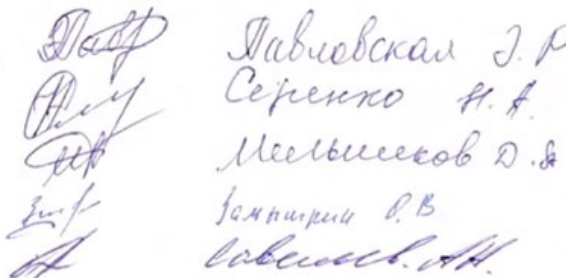 Павловская Э. Р
Серенко Н. А.
Мельников Д. Я
Замышкин О. В
Савельев. А.Н.